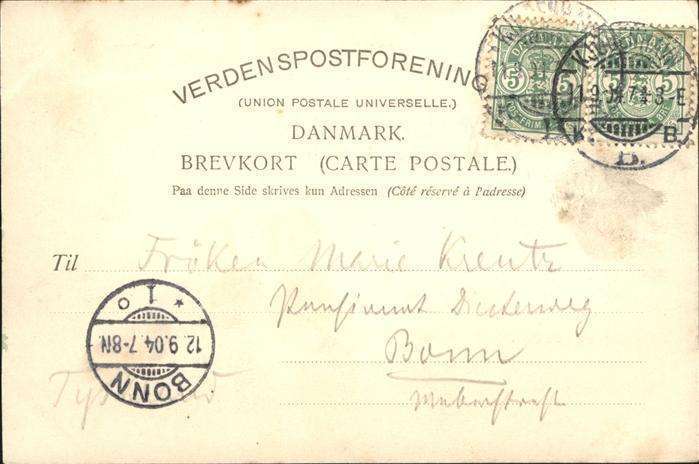 VERDENSPOSTFORENING
(UNION POSTALE UNIVERSELLE.)
DANMARK.
BREVKORT (CARTE POSTALE.)
Paa denne Side skrives kun Adressen (Côté réservé à l'adresse)
Til Fröken Marie Kreutz
Bonn
DANMARK
5 5
DANMARK
5
K. B.
BONN
12.9.04.7-8N
* 1 o